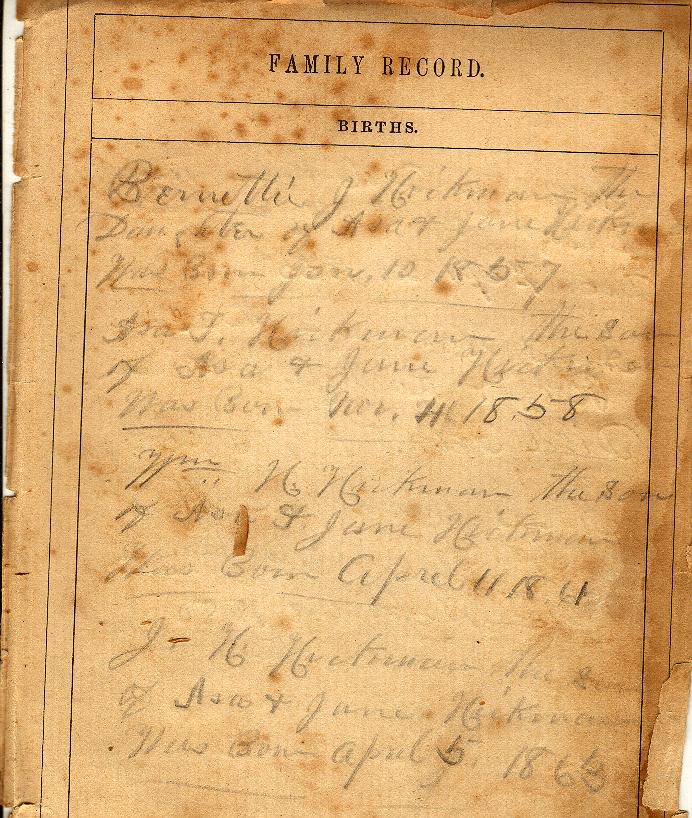 FAMILY RECORD.
BIRTHS.
J Hickman the
Daughter of Asa & Jane Hickm
Was Born Jan, 10 1857
Asa T. Hickman the Son
of Asa & Jane Hickman
Was Born Nov. 11 1858
Wm H. Hickman the Son
of Asa & Jane Hickman
Was Born April 11 18 61
J. H. Hickman the Son
of Asa & Jane Hickman
Was Born April 5, 1863